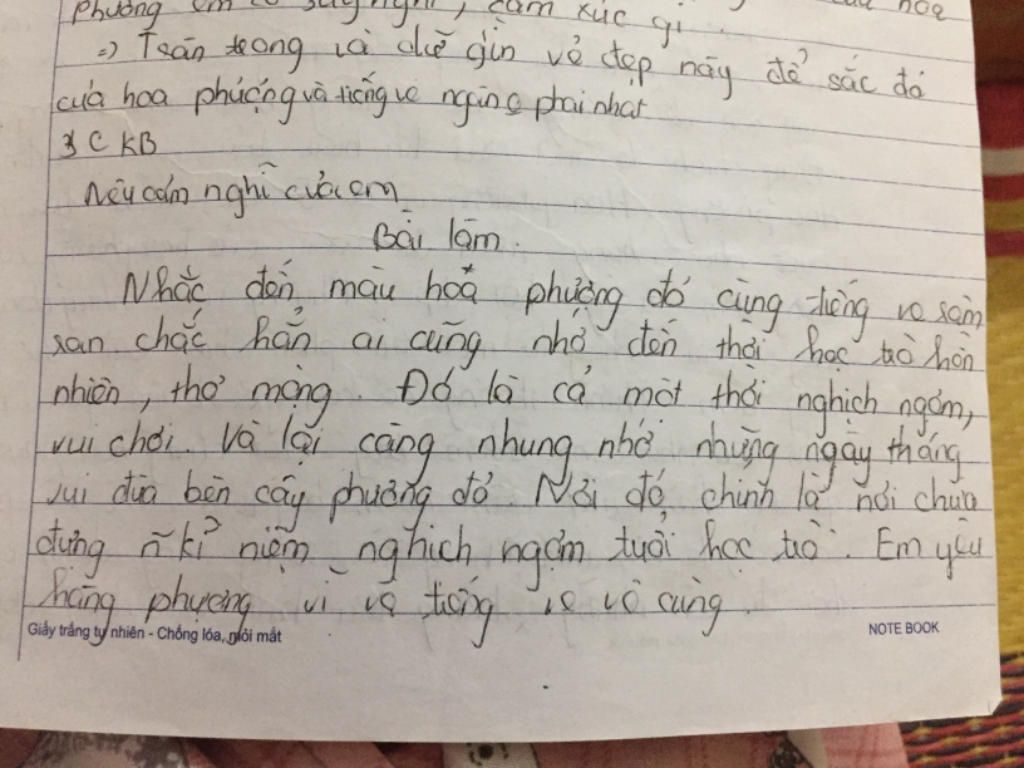 phượng em có suy nghĩ, cảm xúc gì.
=) Trân trọng và dữ gìn vẻ đẹp này để sắc đỏ
của hoa phượng và tiếng ve ngừng phai nhạt
3 C KB
Nêu cảm nghĩ của em
Bài làm.
Nhắc đến màu hoa phượng đỏ cùng tiếng ve sàm
san chắc hẳn ai cũng nhớ đến thời học trò hồn
nhiên, thơ mộng. Đó là cả một thời nghịch ngợm,
vui chơi. Và lại càng nhung nhớ những ngày tháng
vui đùa bên cây phượng đỏ. Nơi đó, chính là nơi chứa
đựng ~ kỉ niệm nghịch ngợm tuổi học trò. Em yêu
hàng phượng vĩ và tiếng ve vô cùng.
Giấy trắng tự nhiên - Chống lóa, mỏi mắt
NOTE BOOK